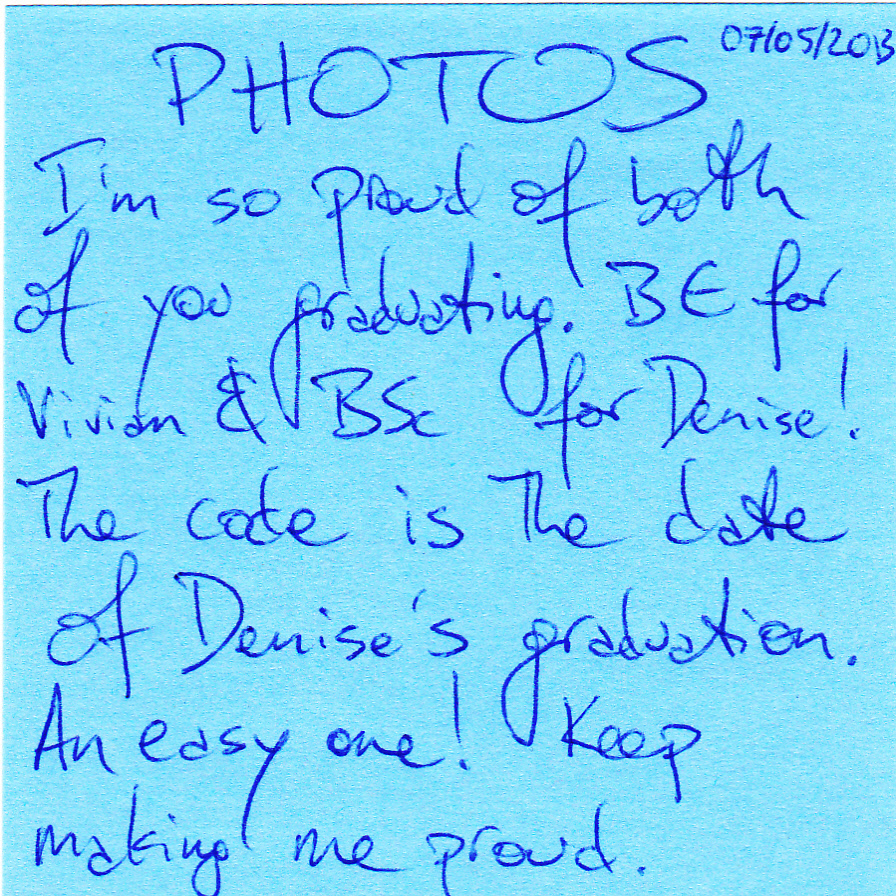 PHOTOS 07/05/2013
I'm so proud of both
of you graduating. BE for
Vivian & BSc for Denise!
The code is the date
of Denise's graduation.
An easy one! Keep
making me proud.